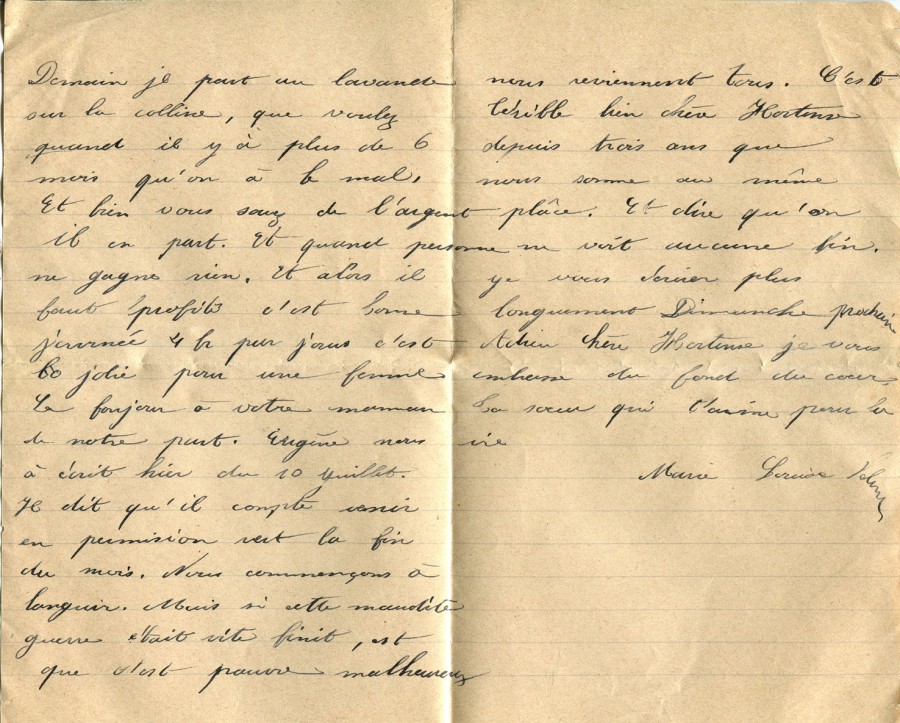 Demain je part au lavande
sur la colline, que voulez
quand il y à plus de 6
mois qu'on à le mal.
Et bien vous savez de l'argent
il en part. Et quand personne
ne gagne rien. Et alors il
faut profité c'est bonne
journée 4 fr par jours c'est
jolie pour une femme
Le bonjour à votre maman
de notre part. Eugène nous
à écrit hier du 10 juillet.
Il dit qu'il compte venir
en permision vert la fin
du mois. Nous commençons à
languir. Mais si cette maudite
guerre était vite finit, est
que c'est pauvre malheureux
nous reviennent tous. C'est
térible bien chère Hortense
depuis trois ans que
nous somme au même
plâce. Et dire qu'on
ne voit aucune fin.
je vous écrirer plus
longuement Dimanche prochain
Adieu chère Hortense je vous
embrasse du fond du cœur.
La sœur qui t'aime pour la
vie
Marie Louise